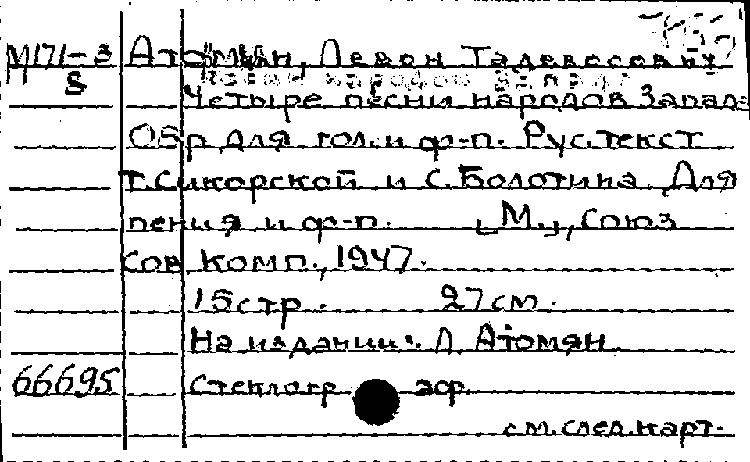 М171-3 Атомян, Левон Тадевосович
8
Четыре песни народов Запад
Обр для гол. и ф-п. Рус. текст
Т. Сикорской и С. Болотина. Для
пения и ф-п. [М.], Союз
сов комп., 1947.
15 стр. 27 см.
На издании: Л. Атомян.
66695 Стеклогр
см. след. карт.